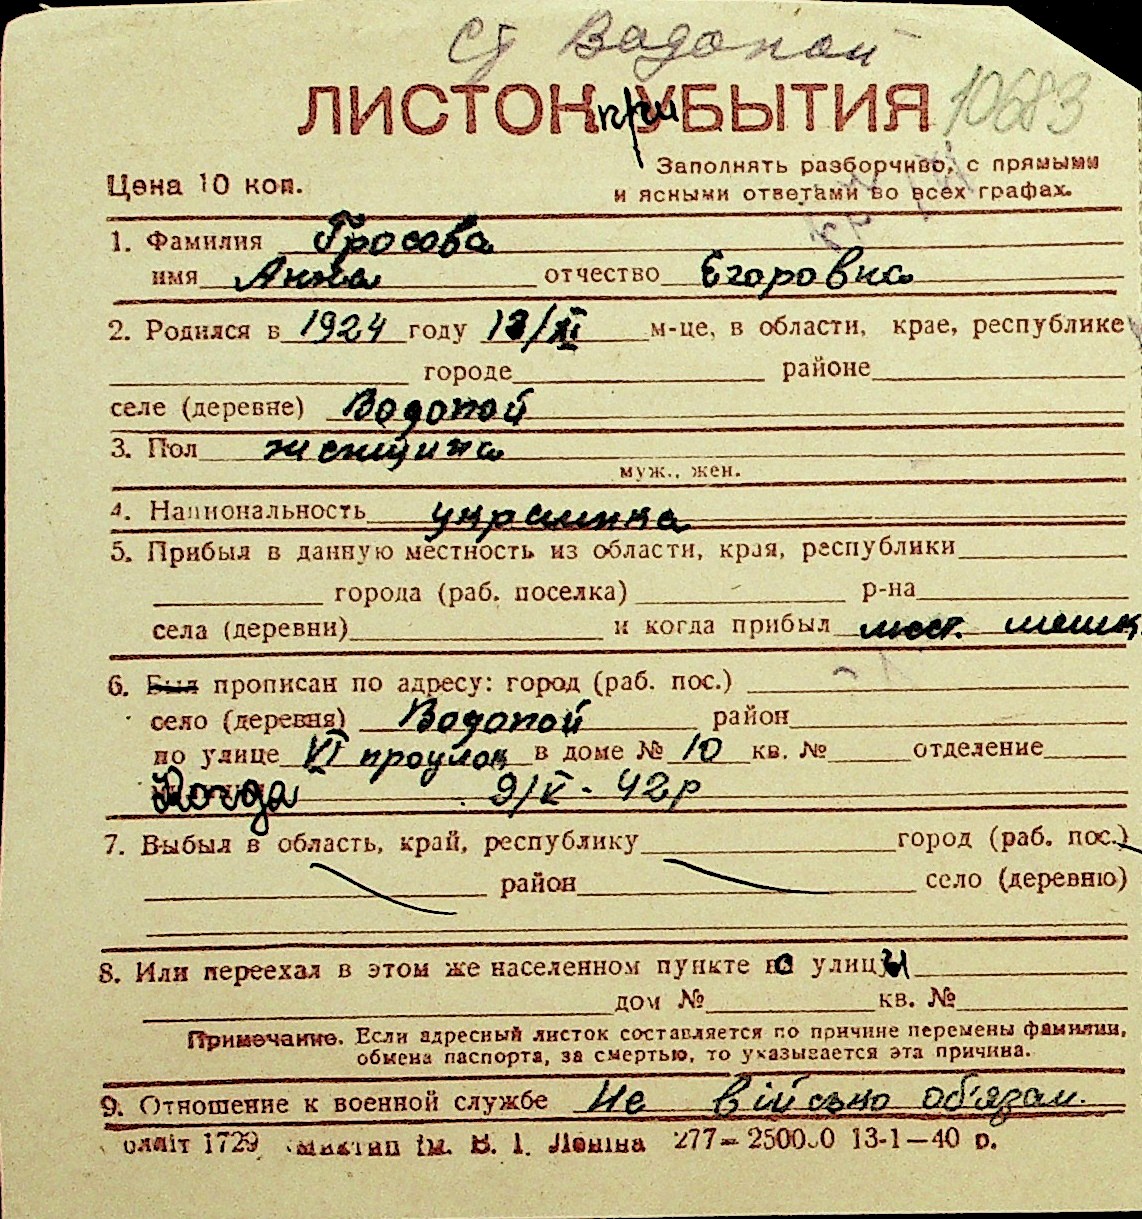 ст Водопой
ЛИСТОК при УБЫТИЯ 10683
Заполнять разборчиво, с прямыми
Цена 10 коп.
и ясными ответами во всех графах.
1. Фамилия Гросова
имя Анна отчество Егоровна
2. Родился в 1924 году 13/XI м-це, в области, крае, республике
городе районе
селе (деревне) Водопой
3. Пол женщина
муж., жен.
4. Национальность украинка
5. Прибыл в данную местность из области, края, республики
города (раб. поселка) р-на
села (деревни) и когда прибыл мест. мешк
6. Был прописан по адресу: город (раб. пос.)
село (деревня) Водопой район
по улице VI проулок в доме № 10 кв. № отделение
Когда 9/V - 42р
7. Выбыл в область, край, республику город (раб. пос.)
район село (деревню)
8. Или переехал в этом же населенном пункте со улицы
дом № кв. №
Примечание. Если адресный листок составляется по причине перемены фамилии,
обмена паспорта, за смертью, то указывается эта причина.
9. Отношение к военной службе Не військо об'язан.
олліт 1729 ім. В. І. Леніна 277—250000 13-1—40 р.